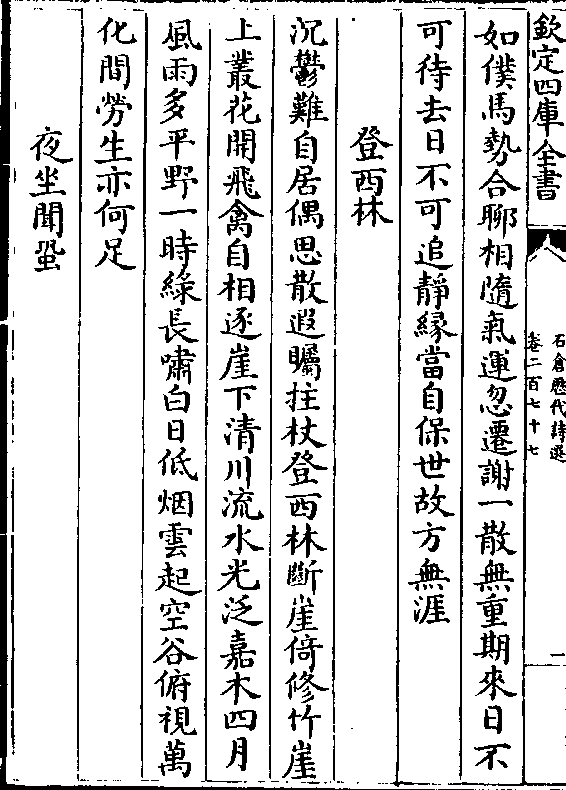 欽定四庫全書
石倉歴代詩選
卷二百七十七
一
如僕馬勢合聊相隨氣運忽遷謝一散無重期來日不
可待去日不可追靜緣當自保世故方無涯
登西林
沉鬱難自居偶思散遐矚拄杖登西林斷崖倚修竹崖
上叢花開飛禽自相逐崖下清川流水光泛嘉木四月
風雨多平野一時綠長嘯白日低烟雲起空谷俯視萬
化間勞生亦何足
夜坐聞蛩